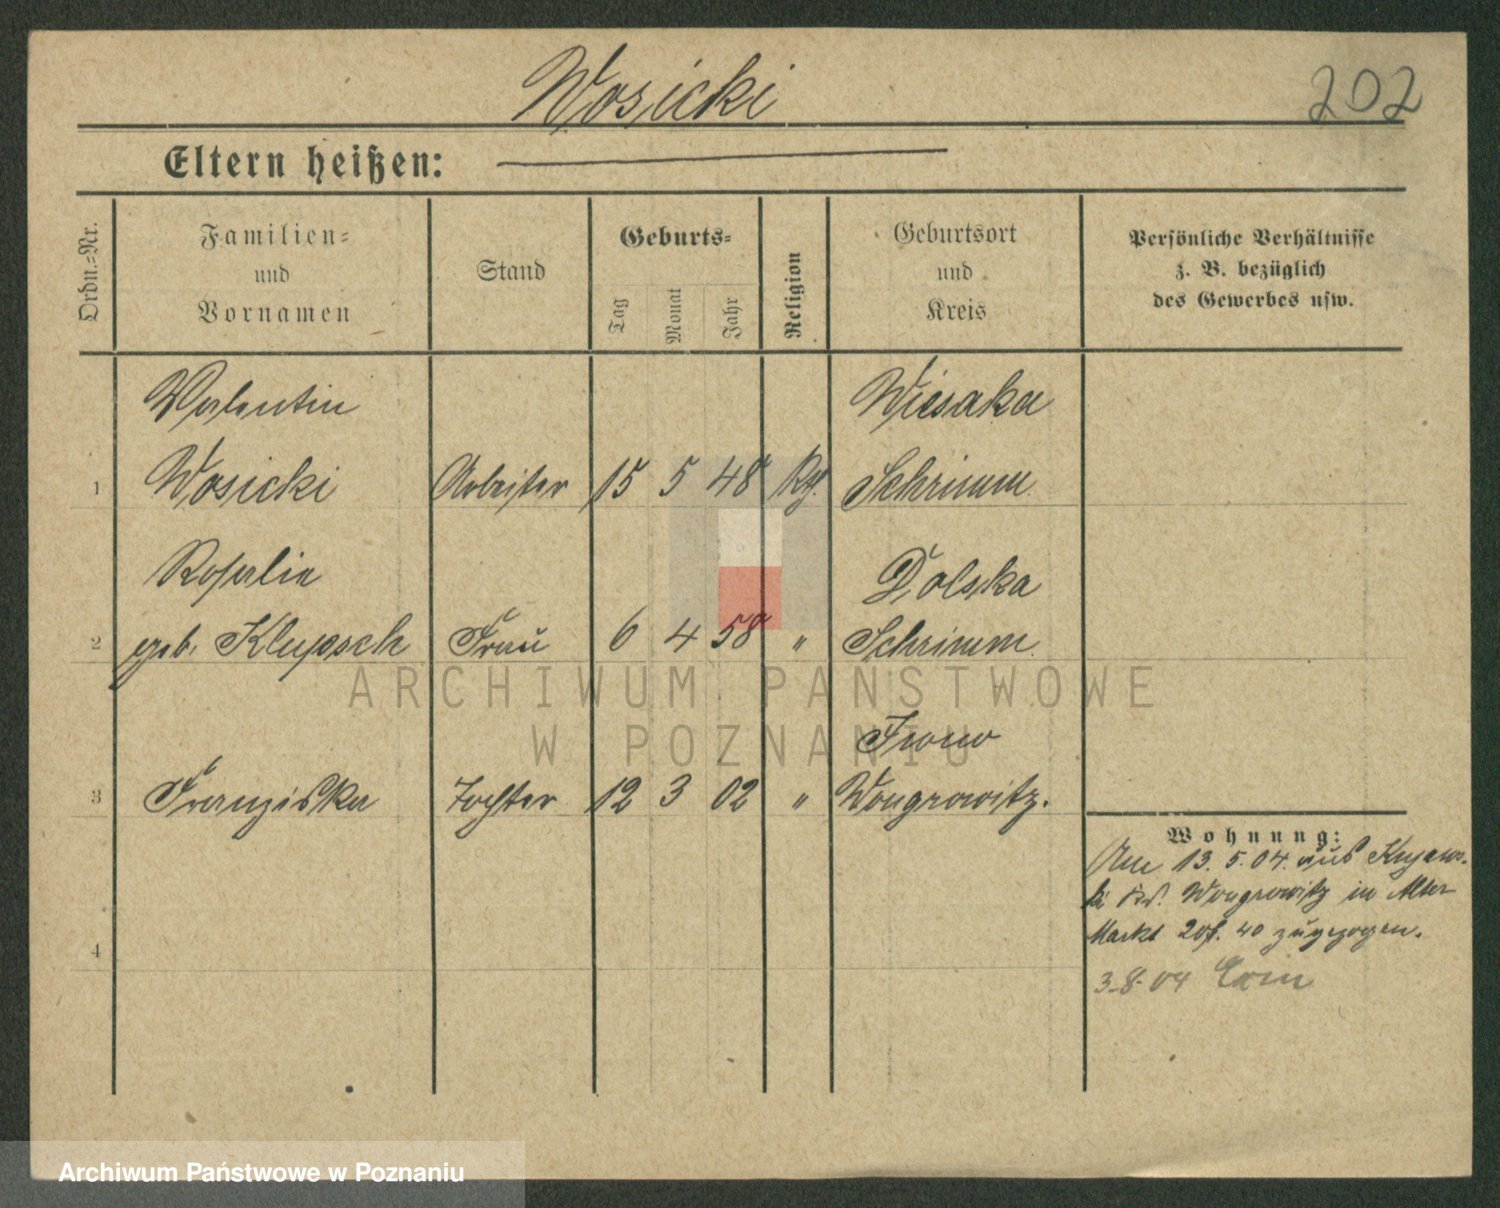 Wosicki
202
Eltern heißen:
Ordn.=Nr.
Familien=
und
Vornamen
Stand
Geburts=
Tag
Monat
Jahr
Religion
Geburtsort
und
Kreis
Persönliche Verhältnisse
z. B. bezüglich
des Gewerbes usw.
Valentin Wieśaka
1 Wosicki Arbeiter 15 5 48 Schrimm
Rosalie Dolska
2 geb. Klupsch Frau 6 4 58 " Schrimm
ARCHIWUM PAŃSTWOWE
W POZNANIU
3 Franziska Tochter 12 3 02 " Wongrowitz.
Wohnung:
Am 13. 5. 04. aus Kujaws-
ki Wongrowitz in Alter
Markt 40 zugezogen.
4
3.8.04
Archiwum Państwowe w Poznaniu